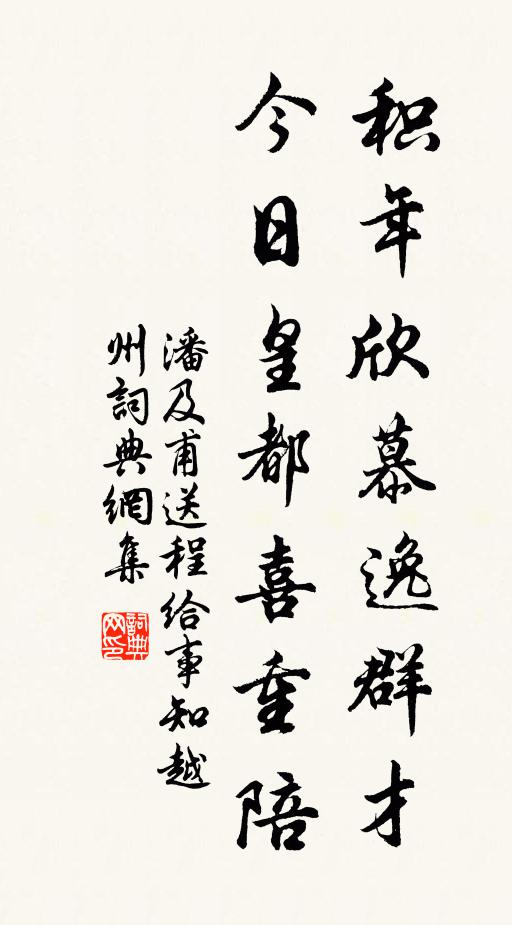 积年欣慕逸群才
今日皇都喜重陪
潘及甫送程给事知越
州詞典網集
詞典
网印